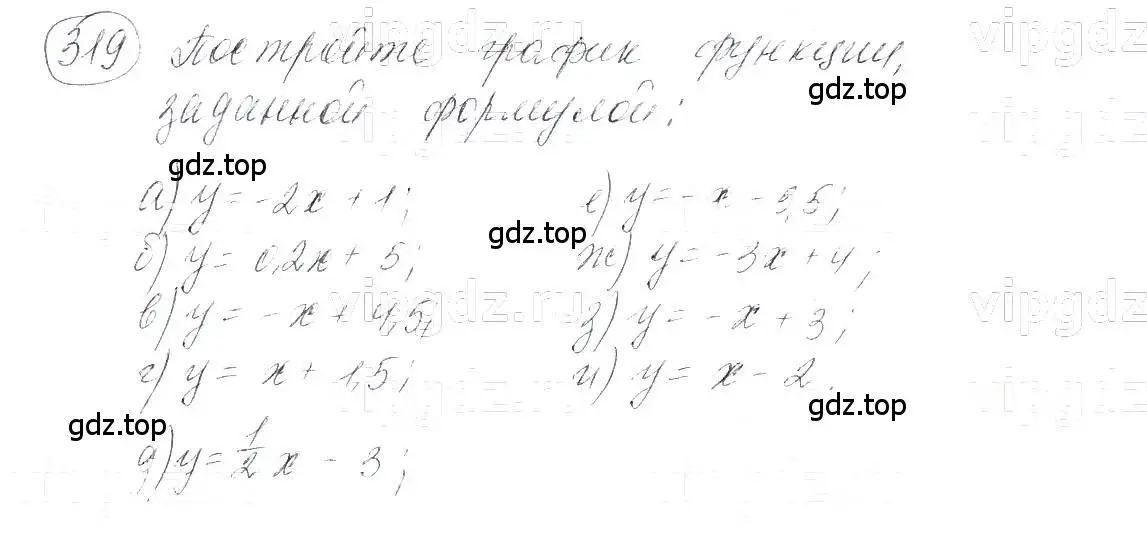 319 Постройте график функции,
заданной формулой:
gdz.top
gdz.top
а) y = -2x + 1; е) y = -x - 3,5;
gdz.top
б) y = 0,2x + 5; ж) y = -3x + 4;
vipgdz.ru
в) y = -x + 4,5; з) y = -x + 3;
г) y = x + 1,5; и) y = x - 2.
gdz.top
gdz.top
д) y = 1/2 x - 3;